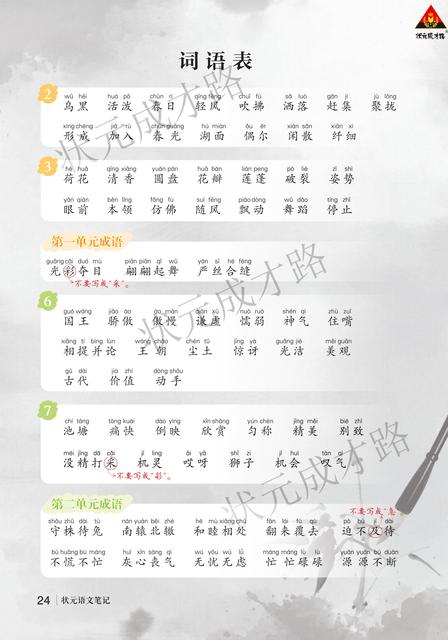 状元成才路
词语表
2
wū hēi huó pō chūn rì qīng fēng chuī fú sǎ luò gǎn jí jù lǒng
乌黑 活泼 春日 轻风 吹拂 洒落 赶集 聚拢
xíng chéng jiā rù chūn guāng hú miàn ǒu ěr xián sǎn xiān xì
形成 加入 春光 湖面 偶尔 闲散 纤细
3
hé huā qīng xiāng yuán pán huā bàn lián peng pò liè zī shì
荷花 清香 圆盘 花瓣 莲蓬 破裂 姿势
yǎn qián běn lǐng fǎng fú suí fēng piāo dòng wǔ dǎo tíng zhǐ
眼前 本领 仿佛 随风 飘动 舞蹈 停止
第一单元成语
guāng cǎi duó mù piān piān qǐ wǔ yán sī hé fèng
光彩夺目 翩翩起舞 严丝合缝
不要写成“采”。
6
guó wáng jiāo ào ào màn qiān xū nuò ruò shén qì zhù zuǐ
国王 骄傲 傲慢 谦虚 懦弱 神气 住嘴
xiāng tí bìng lùn wáng cháo chén tǔ jīng yà guāng jié měi guān
相提并论 王朝 尘土 惊讶 光洁 美观
gǔ dài jià zhí dòng shǒu
古代 价值 动手
7
chí táng tòng kuài dào yìng xīn shǎng yún chèn jīng měi bié zhì
池塘 痛快 倒映 欣赏 匀称 精美 别致
méi jīng dǎ cǎi jī líng āi yā shī zi jī huì tàn qì
没精打采 机灵 哎呀 狮子 机会 叹气
不要写成“彩”。
第二单元成语
不要写成“急”。
shǒu zhū dài tù nán yuán běi zhé hé mù xiāng chǔ fān lái fù qù pò bù jí dài
守株待兔 南辕北辙 和睦相处 翻来覆去 迫不及待
bù huāng bù máng huī xīn sàng qì wú yōu wú lǜ máng máng lù lù yuán yuán bú duàn
不慌不忙 灰心丧气 无忧无虑 忙忙碌碌 源源不断
24 状元语文笔记
状元成才路
状元成才路
状元成才路
状元成才路